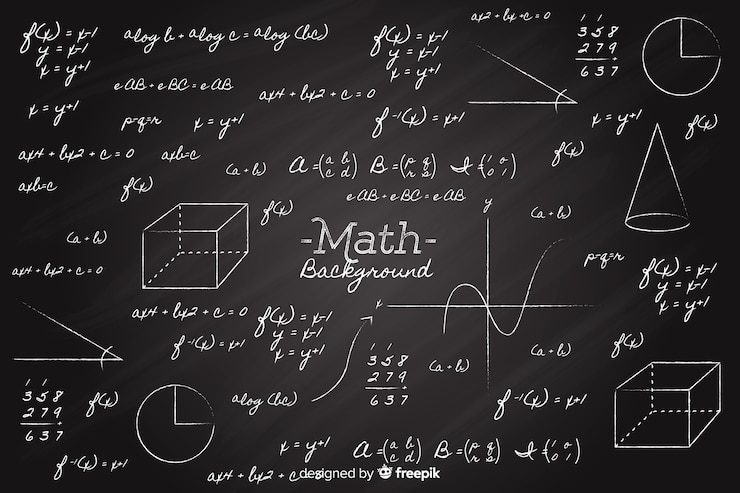 f(x) = x-1
y = x-1
x = y+1
alog b + alog c = alog (bc)
f(x) = x-1
y = x-1
x = y+1
ax2 + bx + c = 0
1 1
358
279
637
eAB + eBC = eAB
ax4 + bx2 + c = 0
x = y+1
p=q=r
x = y+1
f⁻¹(x) = x+1
x = y+1
f(x)
ax4 + bx2 + c = 0
axb=c
(a+b)
A=(a b c d) B=(p q r s) I=(1 0 0 1)
f(x)
axb=c
f(x)
eAB + eBC = eAB
f(x)
y
(a+b)
(a+b)
-Math-
Background
p=q=r
ax4 + bx2 + c = 0
f(x) = x-1
y = x-1
x = y+1
ax4 + bx2 + c = 0
f(x) = x-1
y = x-1
x = y+1
x
f⁻¹(x) = x+1
1 1
358
279
637
(a+b)
(a+b)
f(x)
1 1
358
279
637
f(x)
alog (bc)
f⁻¹(x) = x+1
x = y+1
A=(a b c d) B=(p q r s) I=(1 0 0 1)
f⁻¹(x) = x+1
ax4 + bx2 + c = 0
designed by freepik